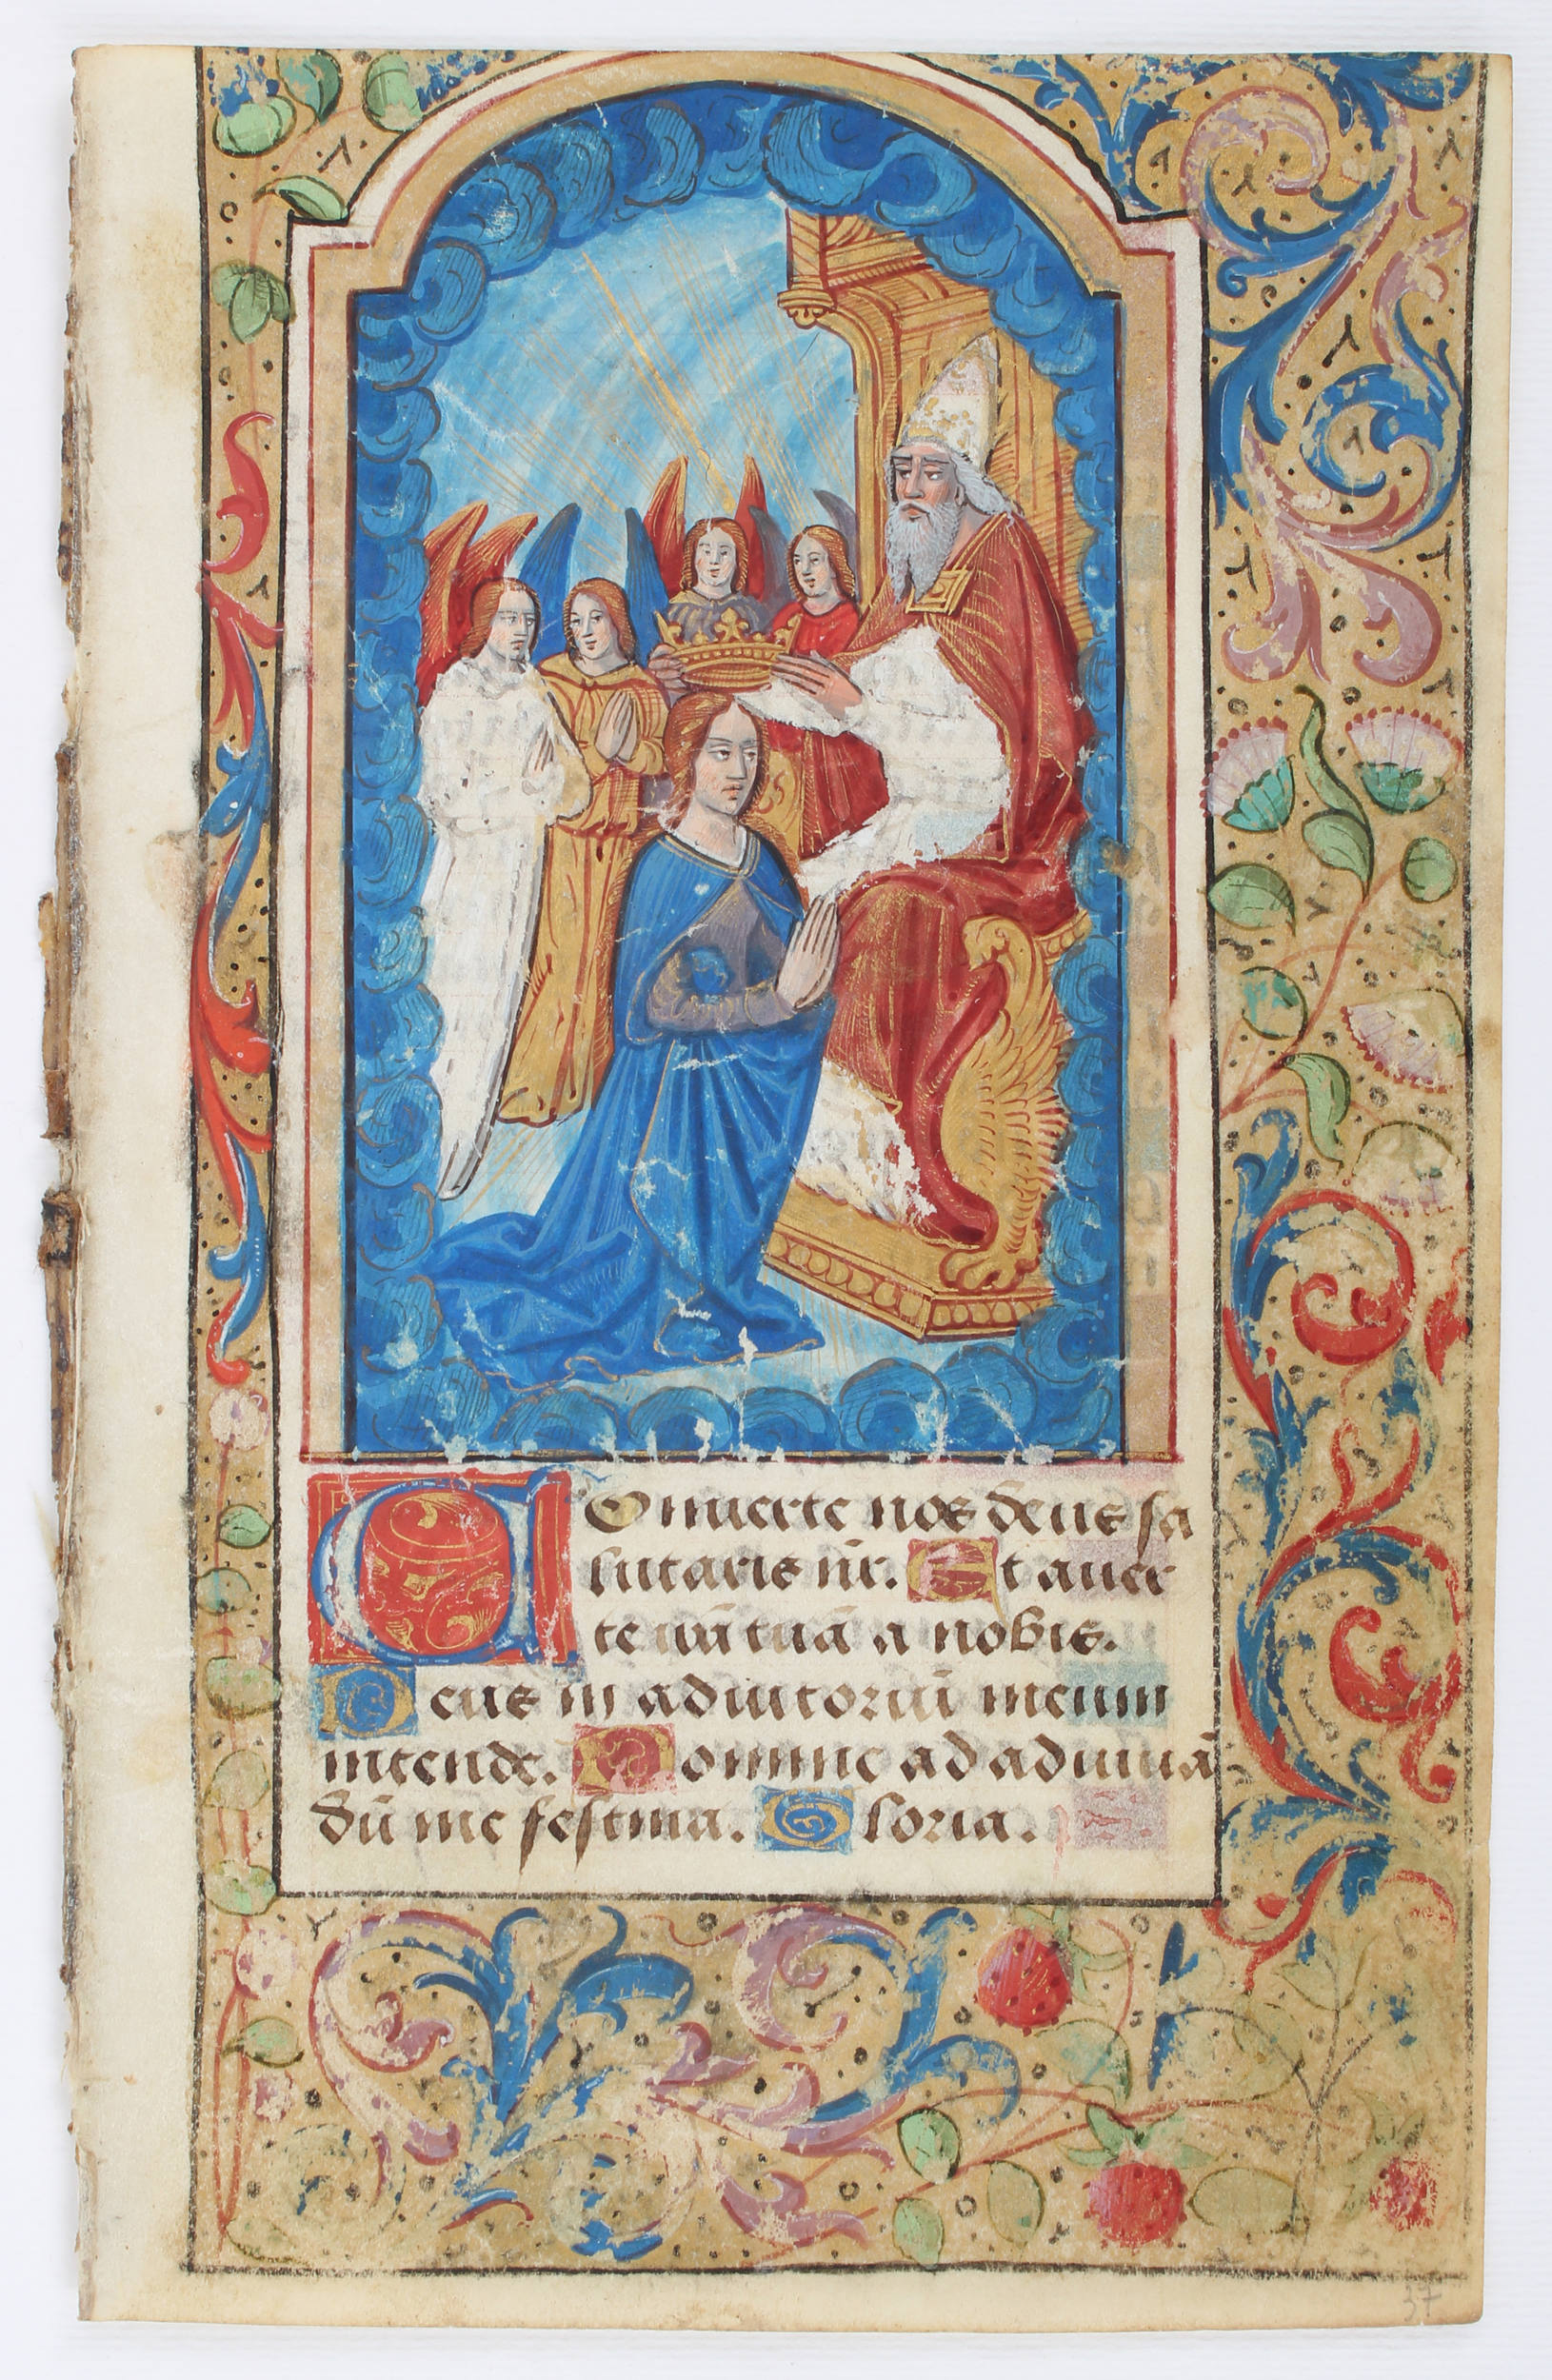 COnuerte nos deus sa
lutaris nr̄. Et auer
te irā tuā a nobis.
Deus in adiutoriū meum
intende. Domine ad adiuuā
dū me festina. Gloria.
37